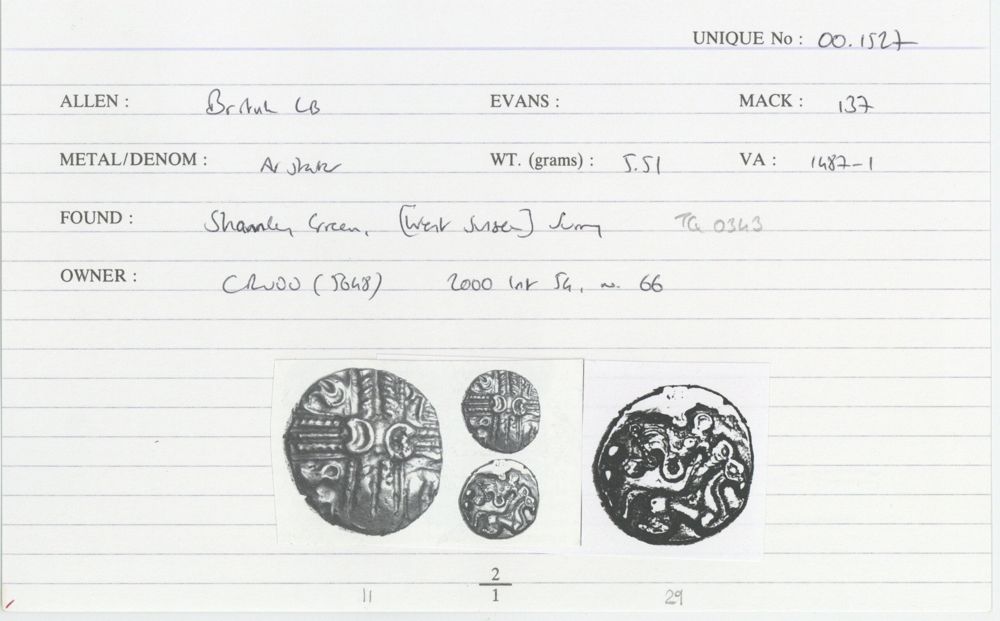 UNIQUE No : 00.1527
ALLEN : British LB EVANS : MACK : 137
METAL/DENOM : AV stater WT. (grams) : 5.51 VA : 1487-1
FOUND : Shamley Green, [West Sussex] Surrey TQ 0343
OWNER : CRUDD (5648) 2000 54, no. 66
2
11 1 29